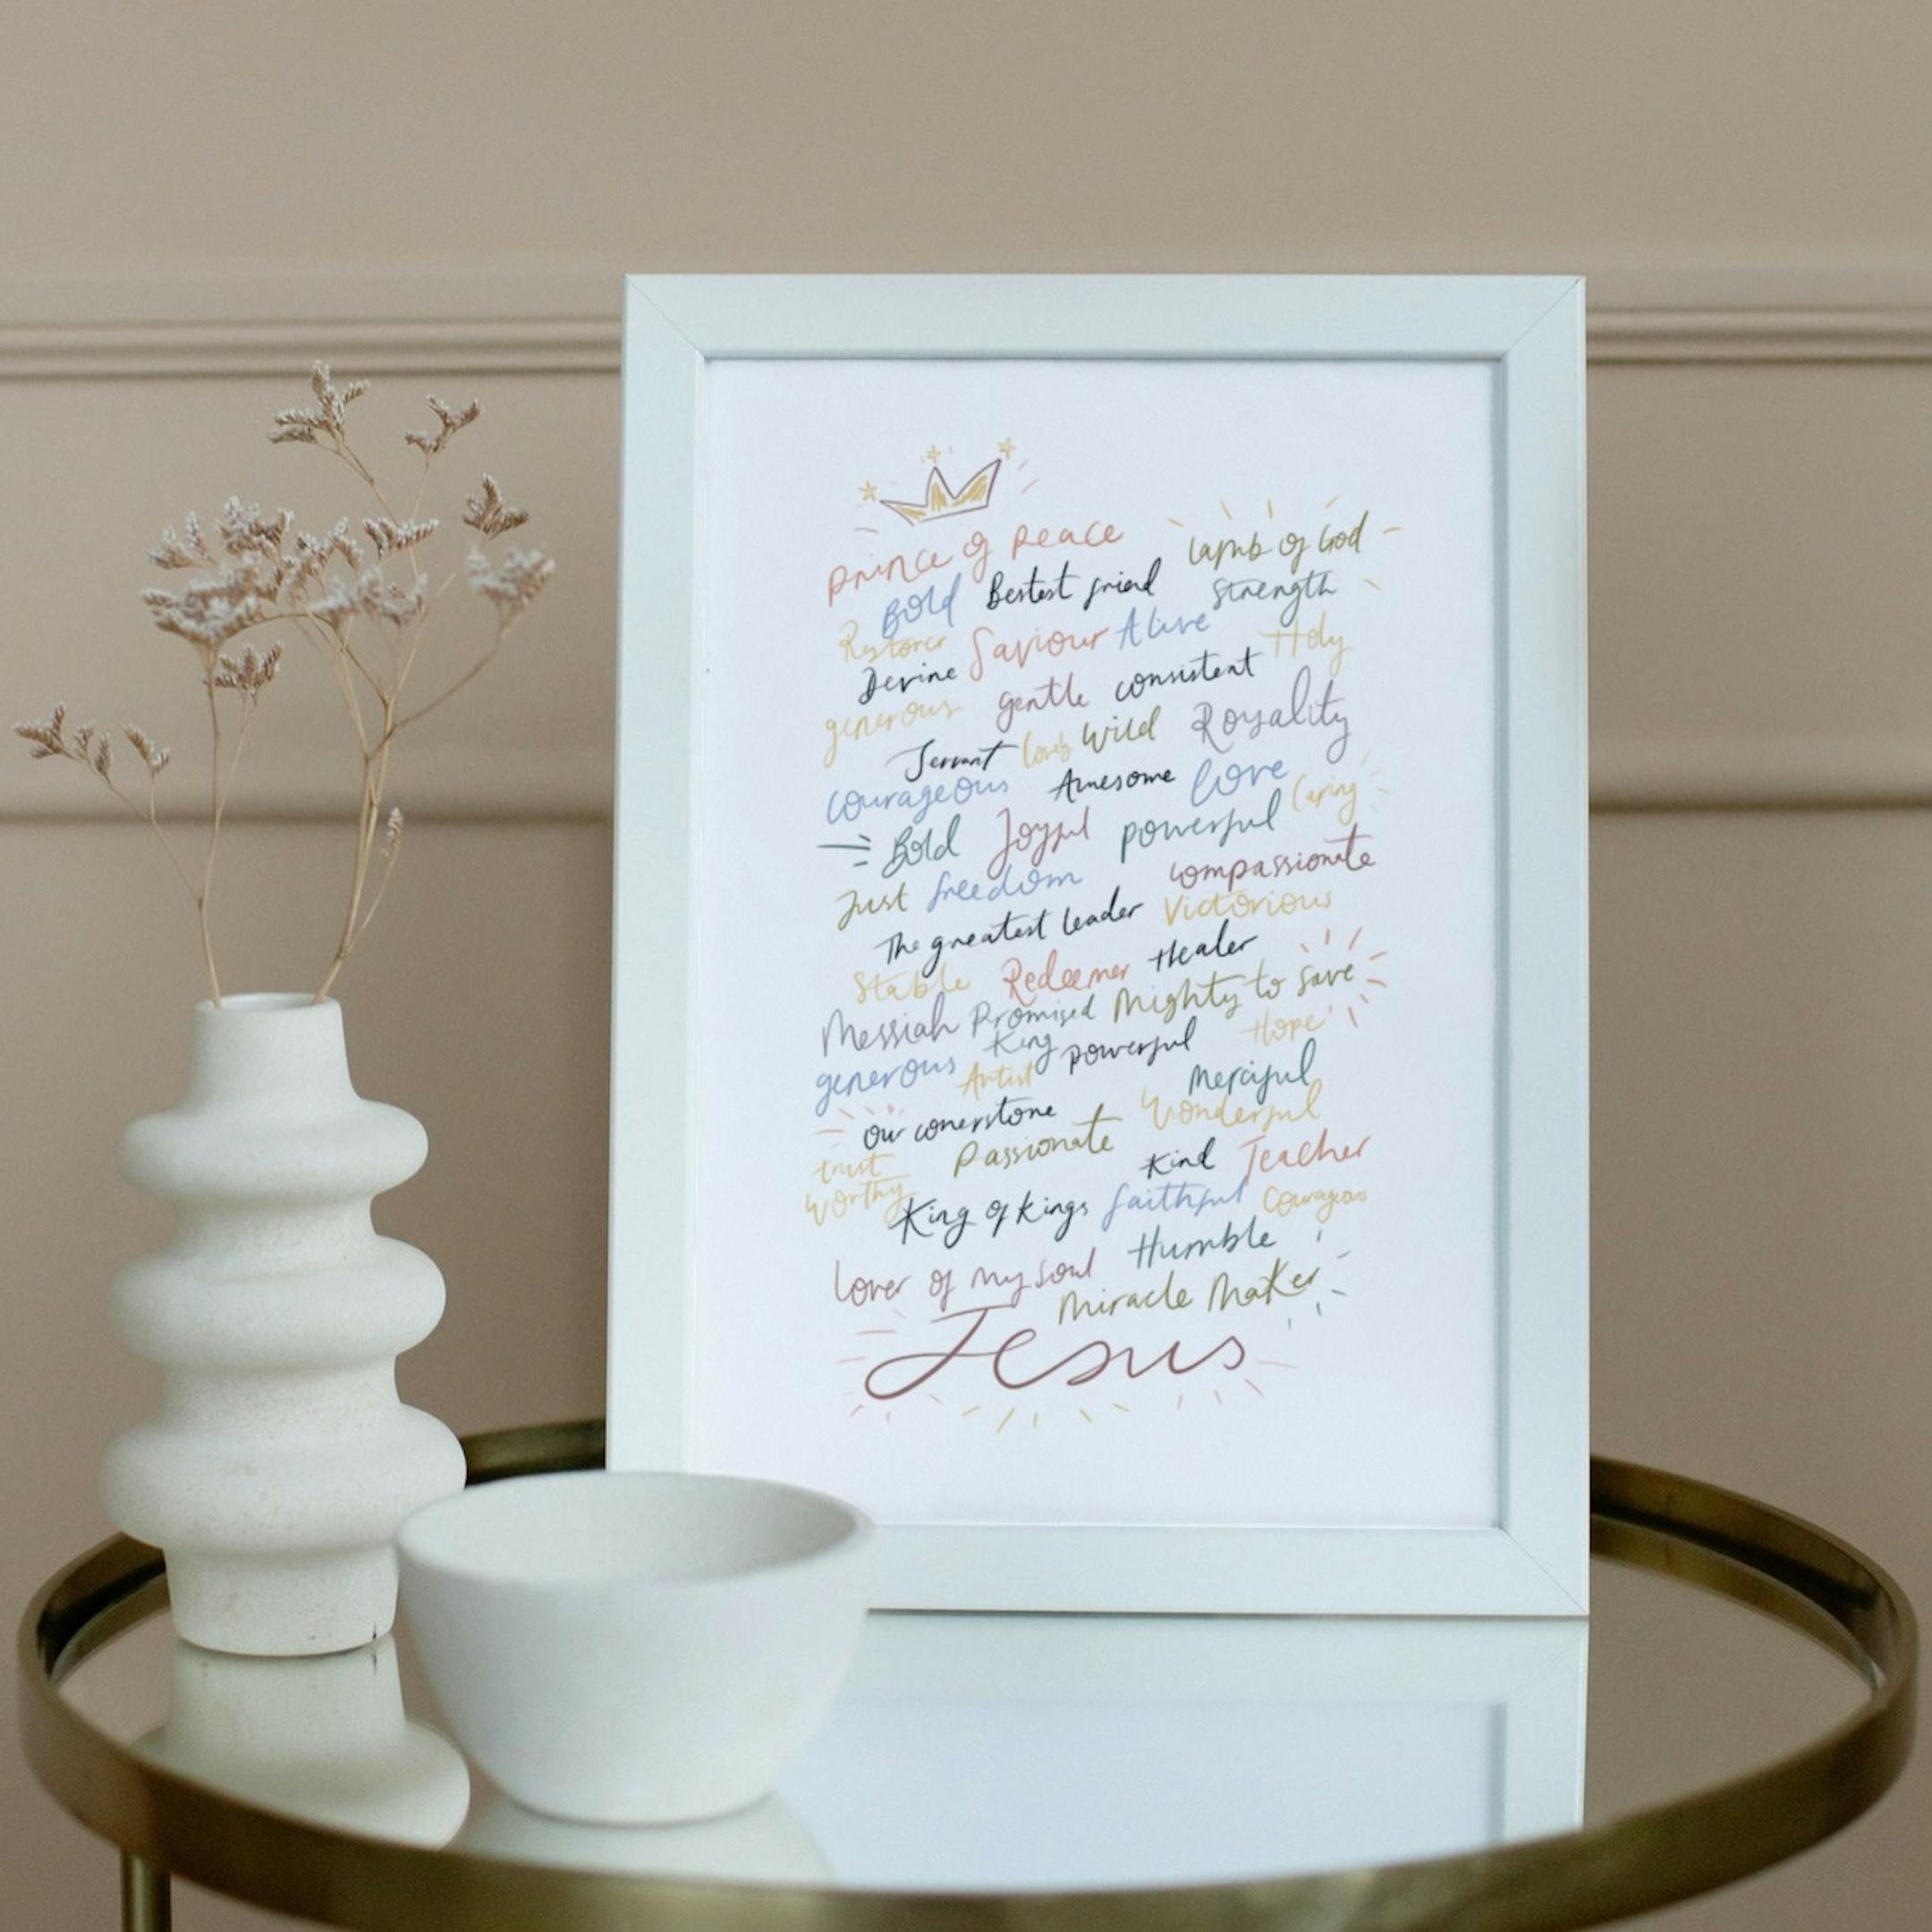 Prince of Peace Lamb of God
Bold Bestest friend Strength
Restorer Saviour Alive Holy
Devine gentle consistent
generous Servant Wild Royality
courageous Awesome love Caring
Bold Joyful powerful
Just freedom compassionate
The greatest leader Victorious
Stable Redeemer Healer
Messiah Promised King Mighty to save
generous Artist powerful Hope
our conerstone Merciful
trust worthy Passionate Wonderful
Kind Teacher
King of kings faithful Courageous
Lover of my soul Humble
Miracle Maker
Jesus